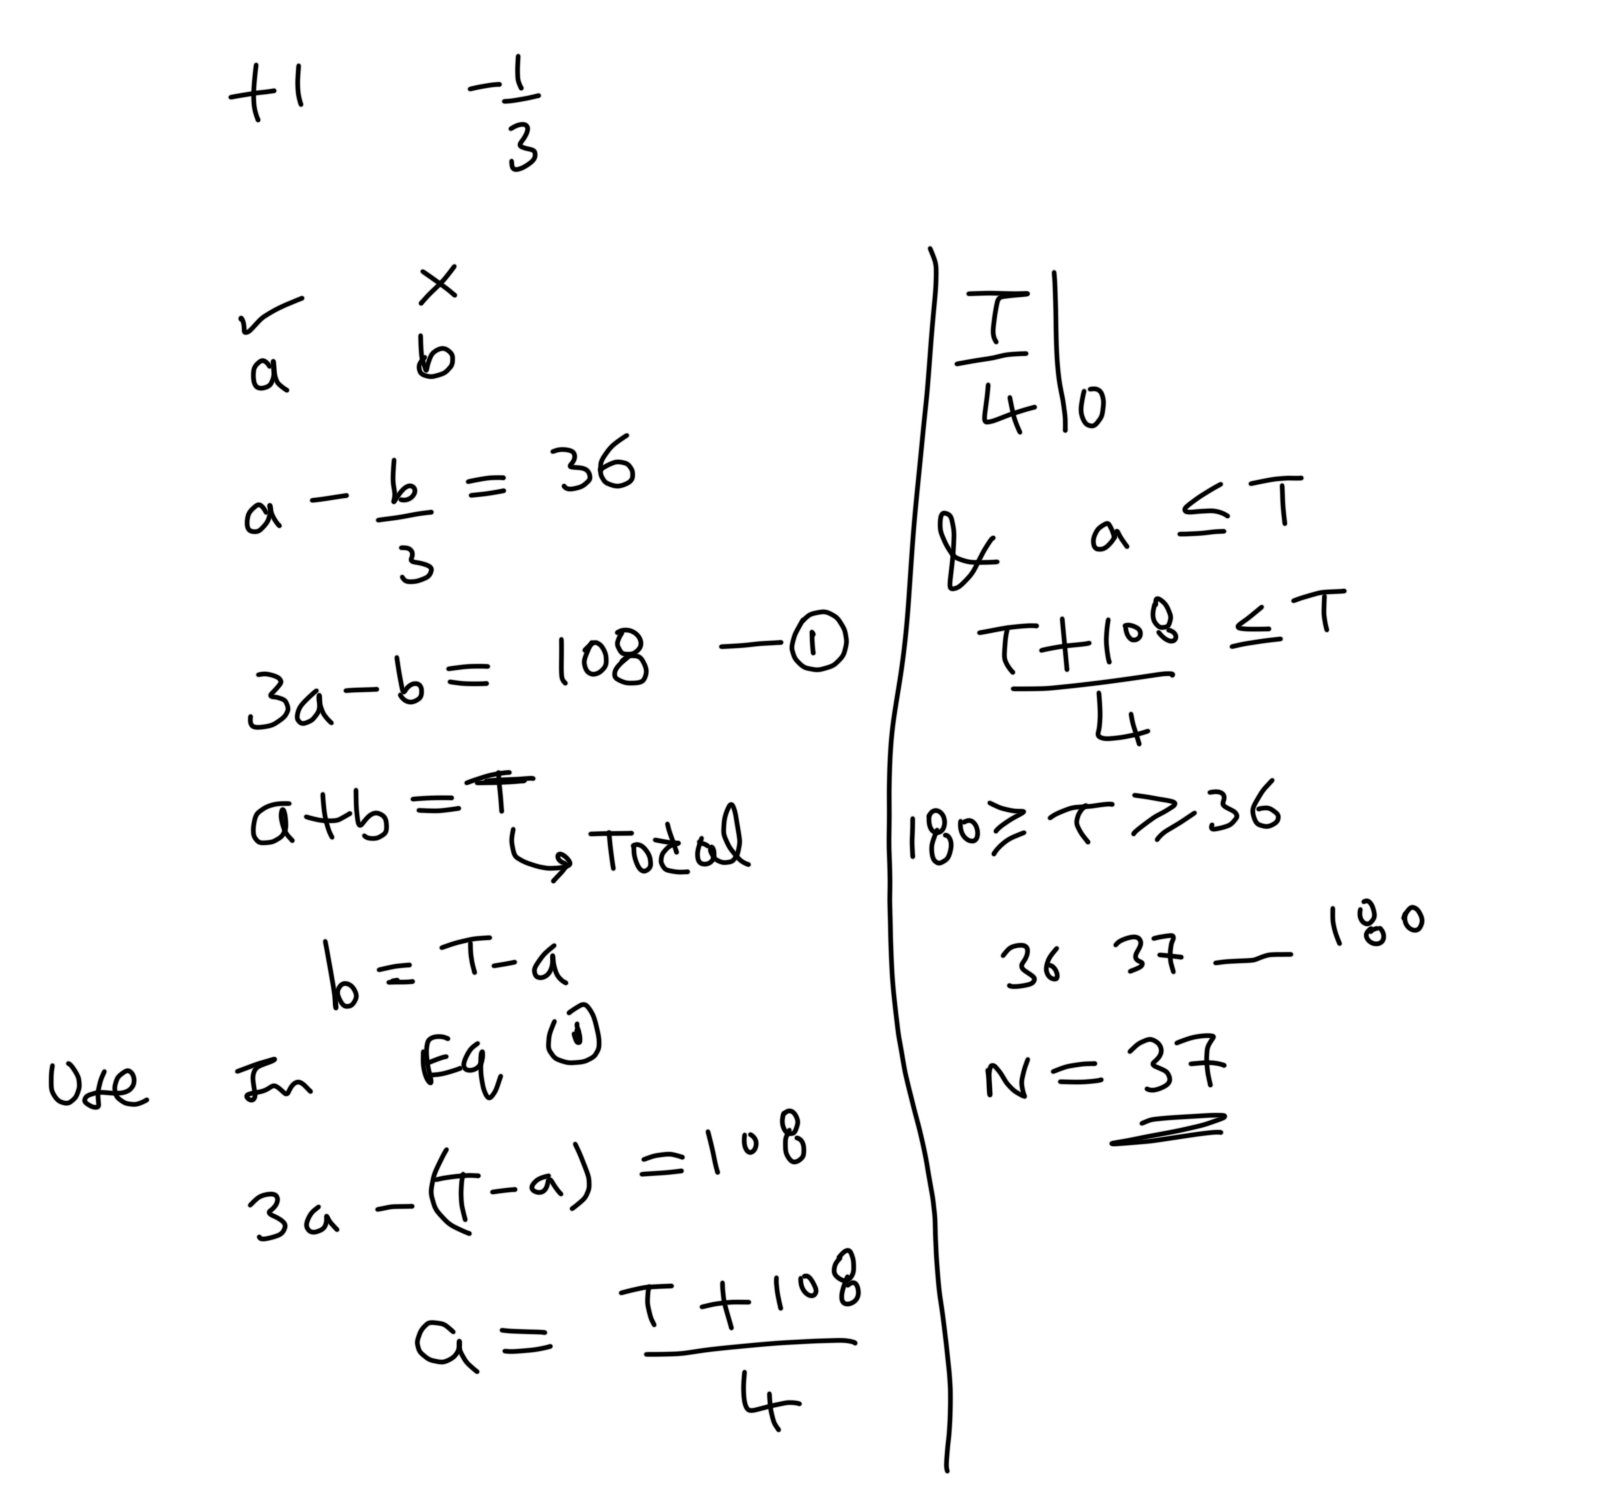 +1 -1/3
✓ ×
a b
a - b/3 = 36
3a - b = 108 — ①
a + b = T
↳ Total
b = T - a
Use In Eq ①
3a - (T - a) = 108
a = (T + 108)/4
T/4 | 0
& a ≤ T
(T + 108)/4 ≤ T
180 ≥ T ≥ 36
36 37 — 180
N = 37